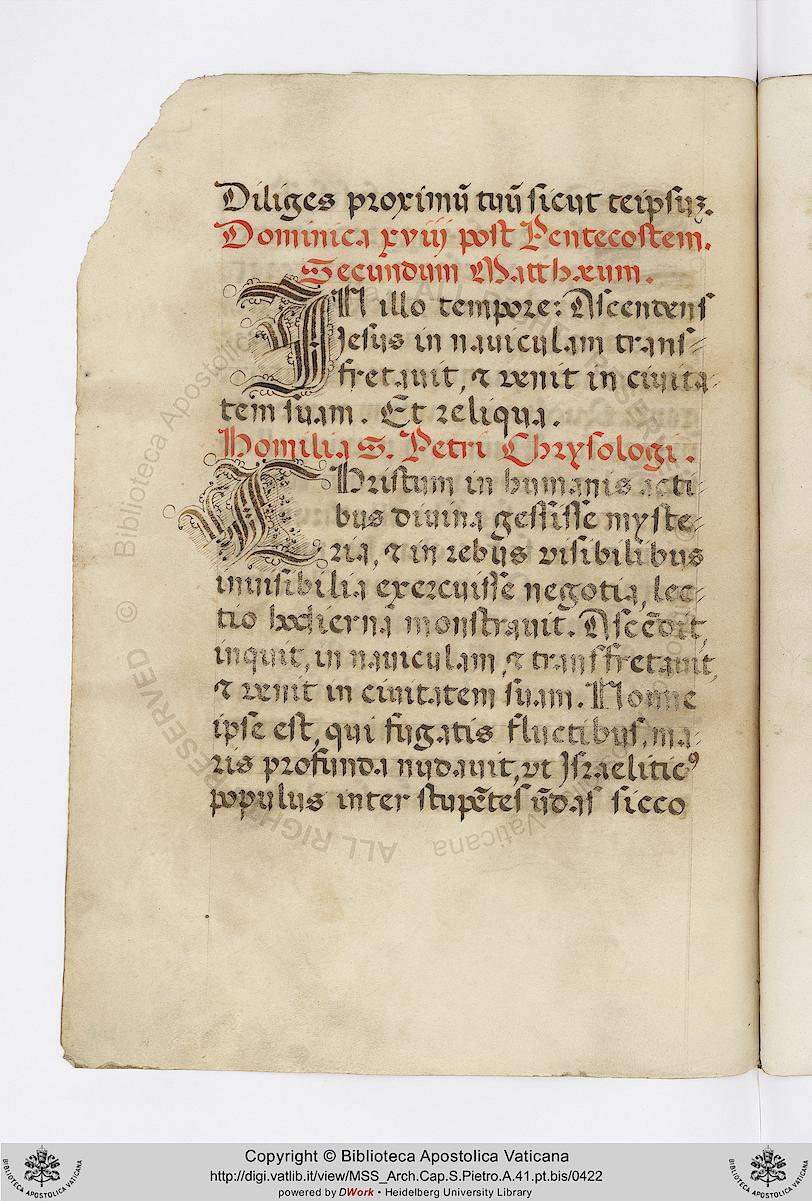 Diliges proximũ tuũ sicut teipsuz.
Dominica xviij post Pentecostem.
Secundum Matthæum.
IN illo tempore: Ascendens
Jesus in nauiculam trans-
fretauit, & uenit in ciuita-
tem suam. Et reliqua.
Homilia S. Petri Chrysologi.
CHristum in humanis acti-
bus diuina gessisse myste-
ria, & in rebus visibilibus
inuisibilia exercuisse negotia, lec-
tio hodierna monstrauit. Ascẽdit,
inquit, in nauiculam, & transfretauit,
& uenit in ciuitatem suam. Nonne
ipse est, qui fugatis fluctibus, ma-
ris profunda nudauit, vt Israelitic9
populus inter stupẽtes ũdas sicco
© Biblioteca Apostolica Vaticana
ALL RIGHTS RESERVED
BIBLIOTECA APOSTOLICA VATICANA
Copyright © Biblioteca Apostolica Vaticana
http://digi.vatlib.it/view/MSS_Arch.Cap.S.Pietro.A.41.pt.bis/0422
powered by DWork • Heidelberg University Library
BIBLIOTECA APOSTOLICA VATICANA